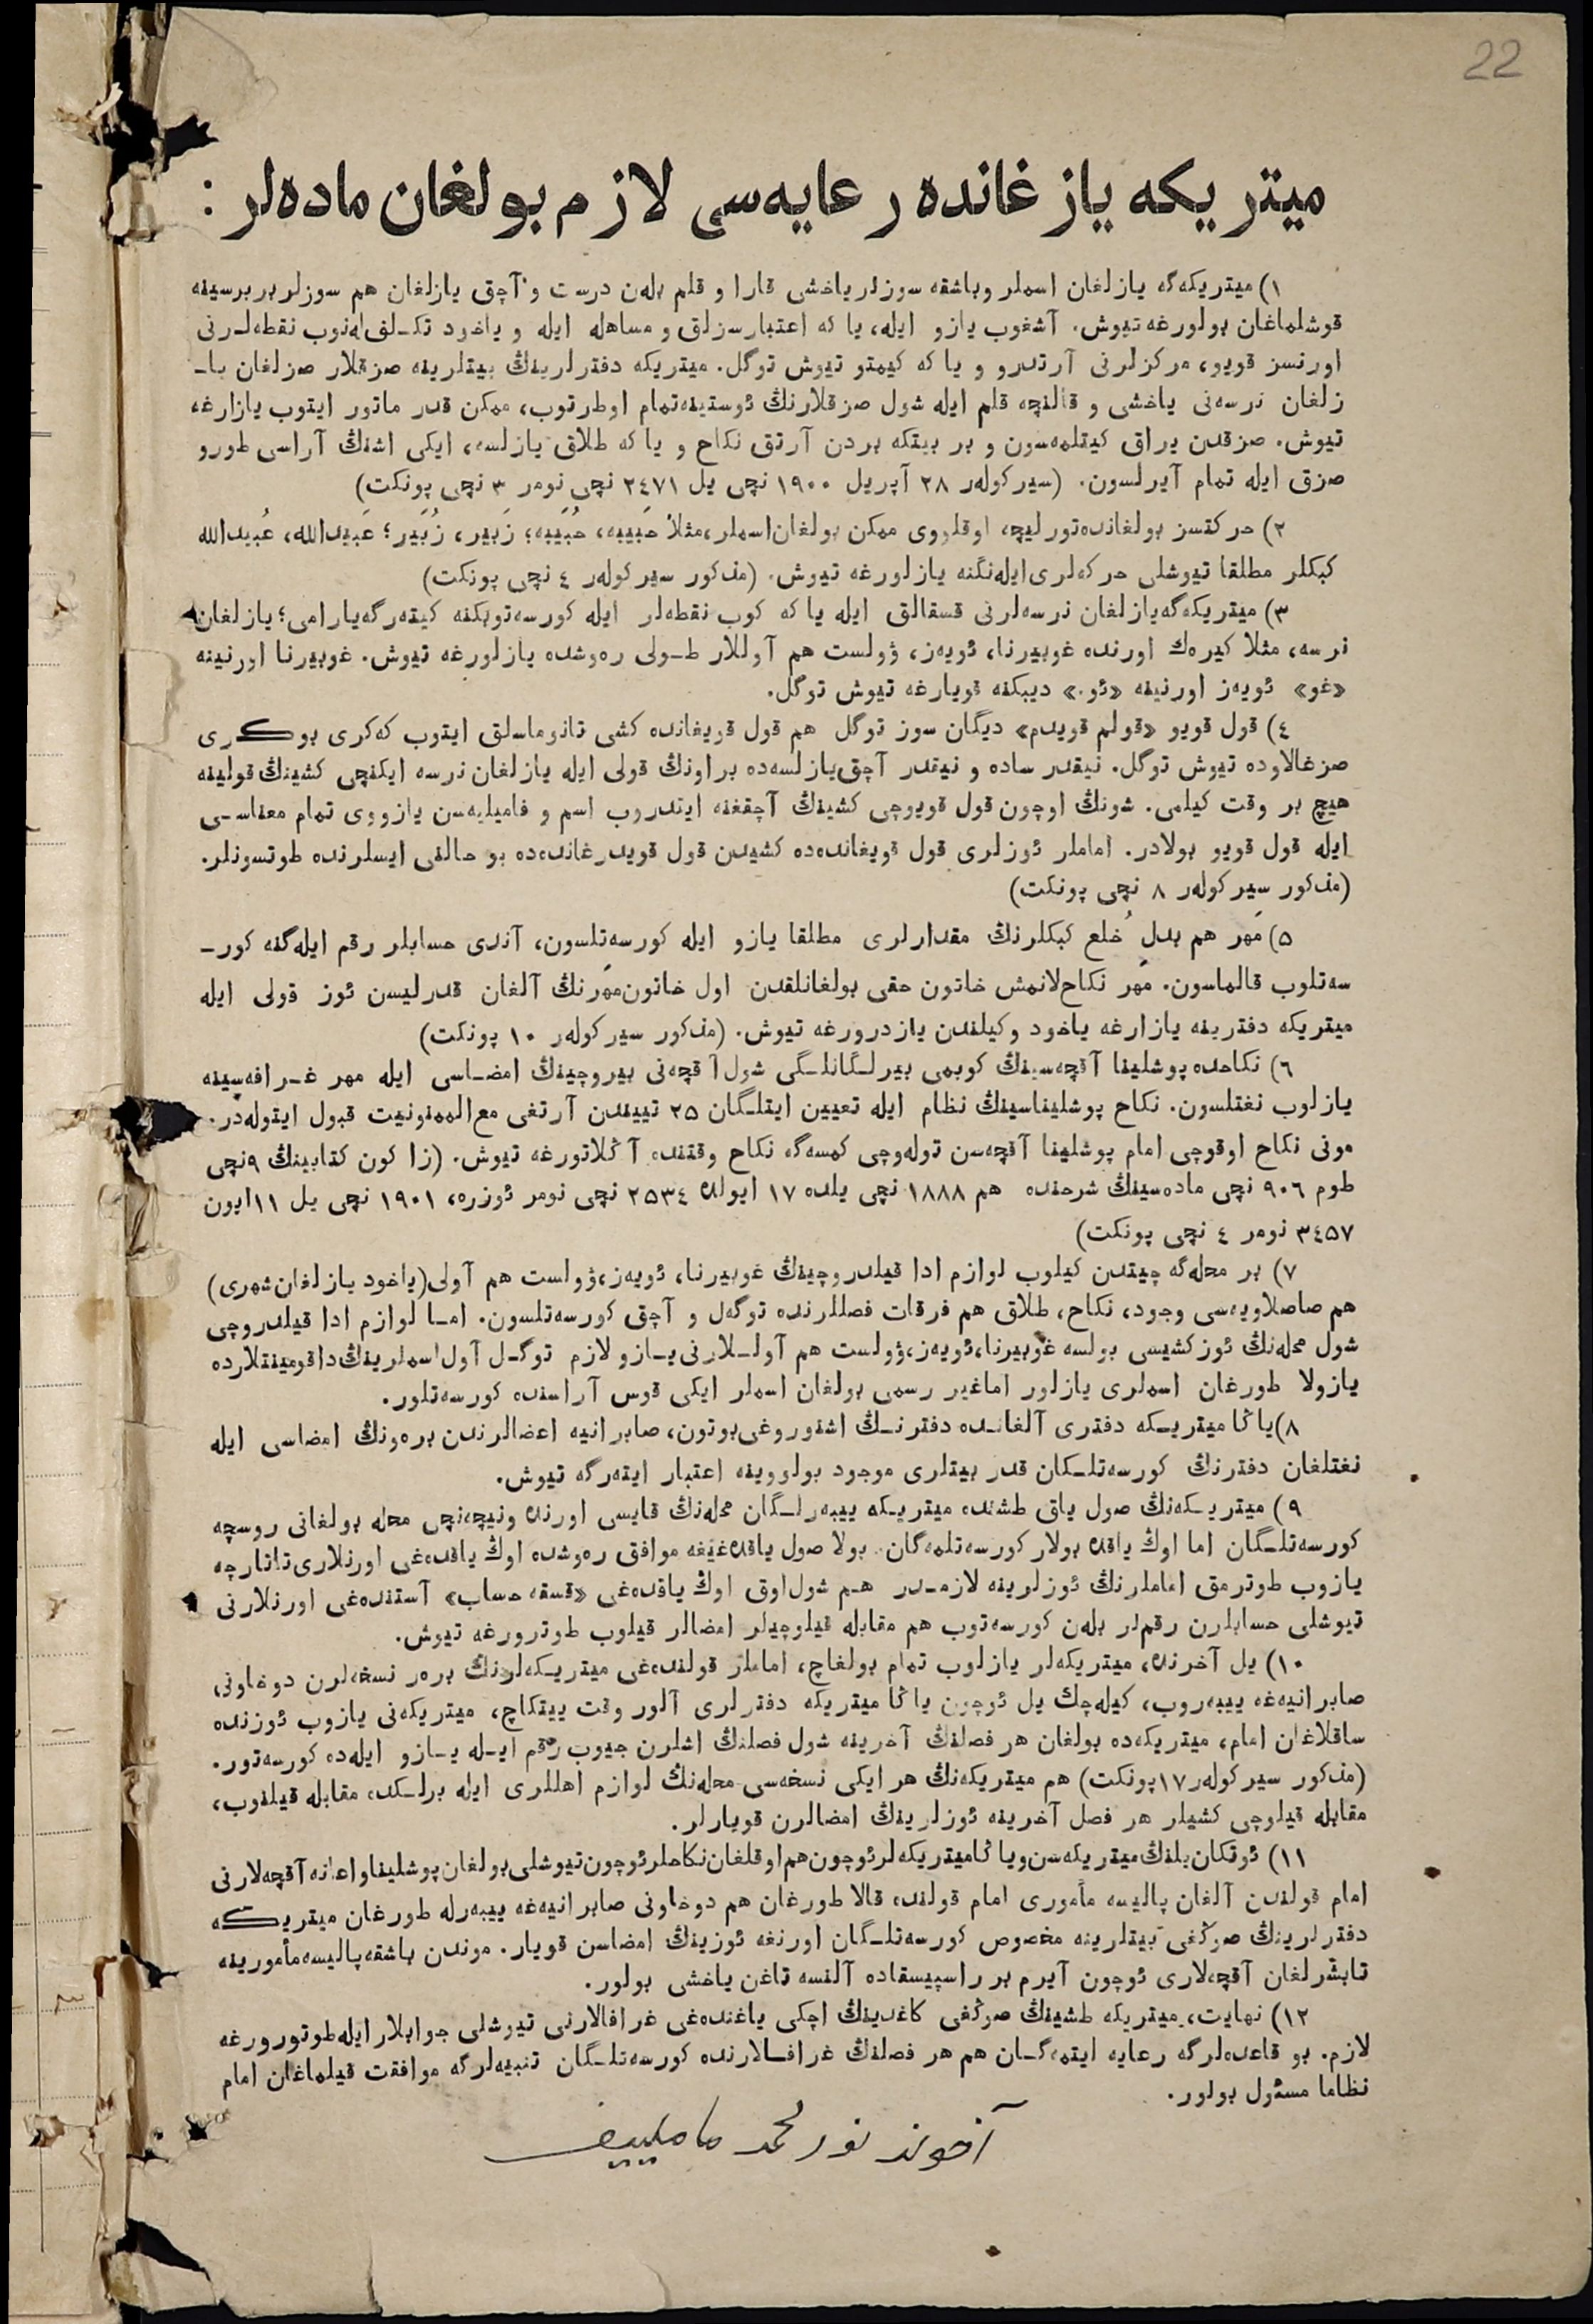 22
ميتريكه يازغانده رعايه‌سى لازم بولغان ماده‌لر :
١) ميتريكه‌گه يازلغان اسملر وباشقه سوزلر ياخشى قارا و قلم بله‌ن درست و آچق يازلغان هم سوزلر بربرسينه
قوشلماغان بولورغه تيوش. آشغوب يازو ايله، يا كه اعتبارسزلق و مساهله ايله و ياخود تكـلف‌له‌نوب نقطه‌لـرنى
اورنسز قويو، مركزلرنى آرتدرو و يا كه كيمتو تيوش توگل. ميتريكه دفترلرينڭ بيتلرينه صزقلار صزلغان ياـ
زلغان نرسه‌نى ياخشى و قالنچه قلم ايله شول صزقلارنڭ ئوستينه‌تمام اوطرتوب، ممكن قدر ماتور ايتوب يازارغه
تيوش. صزقدن يراق كيتلمه‌سون و بر بيتكه بردن آرتق نكاح و يا كه طلاق يازلسه، ايكى اشنڭ آراسى طورو
صزق ايله تمام آيرلسون. (سيركوله‌ر ٢٨ آپريل ١٩٠٠ نچى يل ٢٤٧١ نچى نومر ٣ نچى پونكت)
٢) حركتسز بولغانده‌تورليچه اوقلووى ممكن بولغان‌اسملر،مثلاً حَبيبه، حُبَيبه؛ زَبير، زُبَير؛ عَبيدالله، عُبيدالله
كبكلر مطلقا تيوشلى حركه‌لرى‌ايله‌نگنه يازلورغه تيوش. (مذكور سيركوله‌ر ٤ نچى پونكت)
٣) ميتريكه‌گه‌يازلغان نرسه‌لرنى قسقالق ايله يا كه كوب نقطه‌لر ايله كورسه‌توبكنه كيته‌رگه‌يارامى؛ يازلغان
نرسه، مثلا كيره‌ك اورنده غوبيرنا، ئويه‌ز، ۋولست هم آوللار طـولى ره‌وشده يازلورغه تيوش. غوبيرنا اورنينه
«غو» ئويه‌ز اورنينه «ئو.» ديبكنه قويارغه تيوش توگل.
٤) قول قويو «قولم قويدم» ديگان سوز توگل هم قول قويغانده كشى تانوماسلق ايتوب كه‌كرى بوكرى
صزغالاوده تيوش توگل. نيقدر ساده و نيقدر آچق‌يازلسه‌ده براونڭ قولى ايله يازلغان نرسه ايكنچى كشينڭ قولينه
هيچ بر وقت كيلمى. شونڭ اوچون قول قويوچى كشينڭ آچقغنه ايتدروب اسم و فاميليه‌سن يازووى تمام معناسـى
ايله قول قويو بولادر. اماملر ئوزلرى قول قويغانده‌ده كشيدن قول قويدرغانده‌ده بو حالنى ايسلرنده طوتسونلر.
(مذكور سيركوله‌ر ٨ نچى پونكت)
٥) مَهر هم بدلِ خُلع كبكلرنڭ مقدارلرى مطلقا يازو ايله كورسه‌تلسون، آندى حسابلر رقم ايله‌گنه كورـ
سه‌تلوب قالماسون. مَهر نكاح‌لانمش خاتون حقى بولغانلقدن اول خاتون‌مَهرنڭ آلغان قدرليسن ئوز قولى ايله
ميتريكه دفترينه يازارغه ياخود وكيلندن يازدرورغه تيوش. (مذكور سيركوله‌ر ١٠ پونكت)
٦) نكاحده پوشلينا آقچه‌سينڭ كوبمى بيرلـگانلـگى شول آقچه‌نى بيروچينڭ امضـاسى ايله مهر غـرافه‌سينه
يازلوب نغتلسون. نكاح پوشليناسينڭ نظام ايله تعيين ايتلـگان ٢٥ تييندن آرتغى مع‌الممنونيت قبول ايتوله‌در.
مونى نكاح اوقوچى امام پوشلينا آقچه‌سن توله‌وچى كمسه‌گه نكاح وقتنده آڭلاتورغه تيوش. (زاكون كتابينڭ ٩نچى
طوم ٩٠٦ نچى ماده‌سينڭ شرحنده هم ١٨٨٨ نچى يلده ١٧ ايولده ٢٥٣٤ نچى نومر ئوزره، ١٩٠١ نچى يل ١١ايون
٣٤٥٧ نومر ٤ نچى پونكت)
٧) بر محله‌گه چيتدن كيلوب لوازم ادا قيلدروچينڭ غوبيرنا، ئويه‌ز،ۋولست هم آولى(ياخود يازلغان‌شهرى)
هم صاصلاويه‌سى وجود، نكاح، طلاق هم فرقات فصللرنده توگه‌ل و آچق كورسه‌تلسون. امـا لوازم ادا قيلدروچى
شول محله‌نڭ ئوزكشيسى بولسه غوبيرنا،ئويه‌ز،ۋولست هم آولـلارنى يـازو لازم توگـل آول‌اسملرينڭ‌داقومينتلارده
يازولا طورغان اسملرى يازلور اماغير رسمى بولغان اسملر ايكى قوس آراسنده كورسه‌تلور.
٨)ياڭا ميتريـكه دفترى آلغانـده دفترنـڭ اشنوروغى‌بوتون، صابرانيه اعضالرندن بره‌ونڭ امضاسى ايله
نغتلغان دفترنڭ كورسه‌تلـكان قدر بيتلرى موجود بولووينه اعتبار ايته‌رگه تيوش.
٩) ميتريـكه‌نڭ صول ياق طشنده ميتريـكه ييبه‌رلـگان محله‌نڭ قايسى اورنده ونيچه‌نچى محله بولغانى روسچه
كورسه‌تلـگان اما اوڭ ياقده بولار كورسه‌تلمه‌گان. بولا صول ياقده‌غيغه موافق ره‌وشده اوڭ ياقده‌غى اورنلارى‌تاتارچه
يازوب طوترمق اماملرنڭ ئوزلرينه لازمـدر هـم شول‌اوق اوڭ ياقده‌غى «قسقه حساب» آستنده‌غى اورنلارنى
تيوشلى حسابلرن رقم‌لر بله‌ن كورسه‌توب هم مقابله قيلوچيلر امضالر قيلوب طوترورغه تيوش.
١٠) يل آخرنده، ميتريكه‌لر يازلوب تمام بولغاچ، اماملر قولنده‌غى ميتريـكه‌لرنڭ بره‌ر نسخه‌لرن دوخاونى
صابرانيه‌غه ييبه‌روب، كيله‌چك يل ئوچون ياڭا ميتريكه دفترلرى آلور وقت ييتكاچ، ميتريكه‌نى يازوب ئوزنده
ساقلاغان امام، ميتريكه‌ده بولغان هر فصلنڭ آخرينه شول فصلنڭ اشلرن جيوب رقم ايـله يـازو ايله‌ده كورسه‌تور.
(مذكور سيركوله‌ر١٧پونكت) هم ميتريكه‌نڭ هر ايكى نسخه‌سى محله‌نڭ لوازم اهللرى ايله برلـكده مقابله قيلنوب،
مقابله قيلوچى كشيلر هر فصل آخرينه ئوزلرينڭ امضالرن قويارلر.
١١) ئوتكان‌يلنڭ‌ميتريكه‌سن‌وياڭاميتريكه‌لرئوچون‌هم‌اوقلغان‌نكاحلرئوچون‌تيوشلى‌بولغان‌پوشليناواعانه‌آقچه‌لارنى
امام قولندن آلغان پاليسه مأمورى امام قولنده قالا طورغان هم دوخاونى صابرانيه‌غه ييبه‌رله طورغان ميتريكه
دفترلرينڭ صوڭغى بيتلرينه مخصوص كورسه‌تلـگان اورنغه ئوزينڭ امضاسن قويار. موندن باشقه‌پاليسه‌مأمورينه
تابشرلغان آقچه‌لارى ئوچون آيرم بر راسپيسقاده آلنسه تاغن ياخشى بولور.
١٢) نهايت، ميتريكه طشينڭ صوڭغى كاغدينڭ اچكى ياغنده‌غى غرافالارنى تيوشلى جوابلارايله‌طوتورورغه
لازم. بو قاعده‌لرگه رعايه ايتمه‌گـان هم هر فصلنڭ غرافـالارنده كورسه‌تلـگان تنبيه‌لرگه موافقت قيلماغان امام
نظاما مسئول بولور.
آخوند نور محمد ماملييف